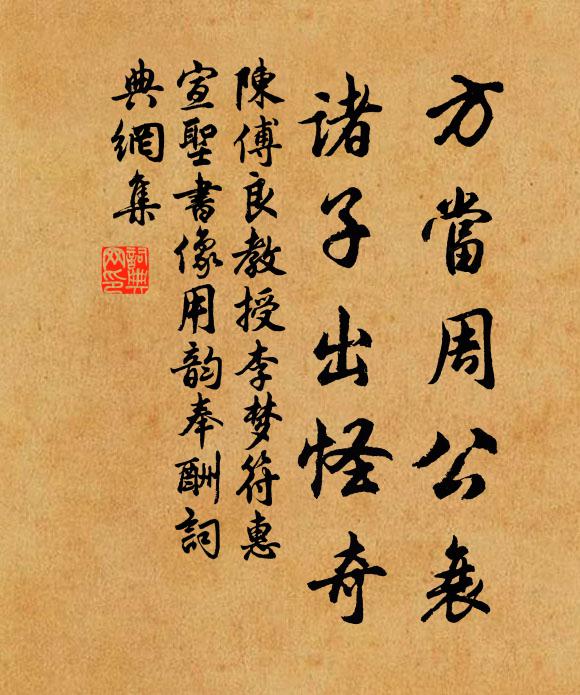 方當周公衰
諸子出怪奇
陳傅良教授李梦符惠
宣聖書像用韵奉酬詞
典網集
詞典網印